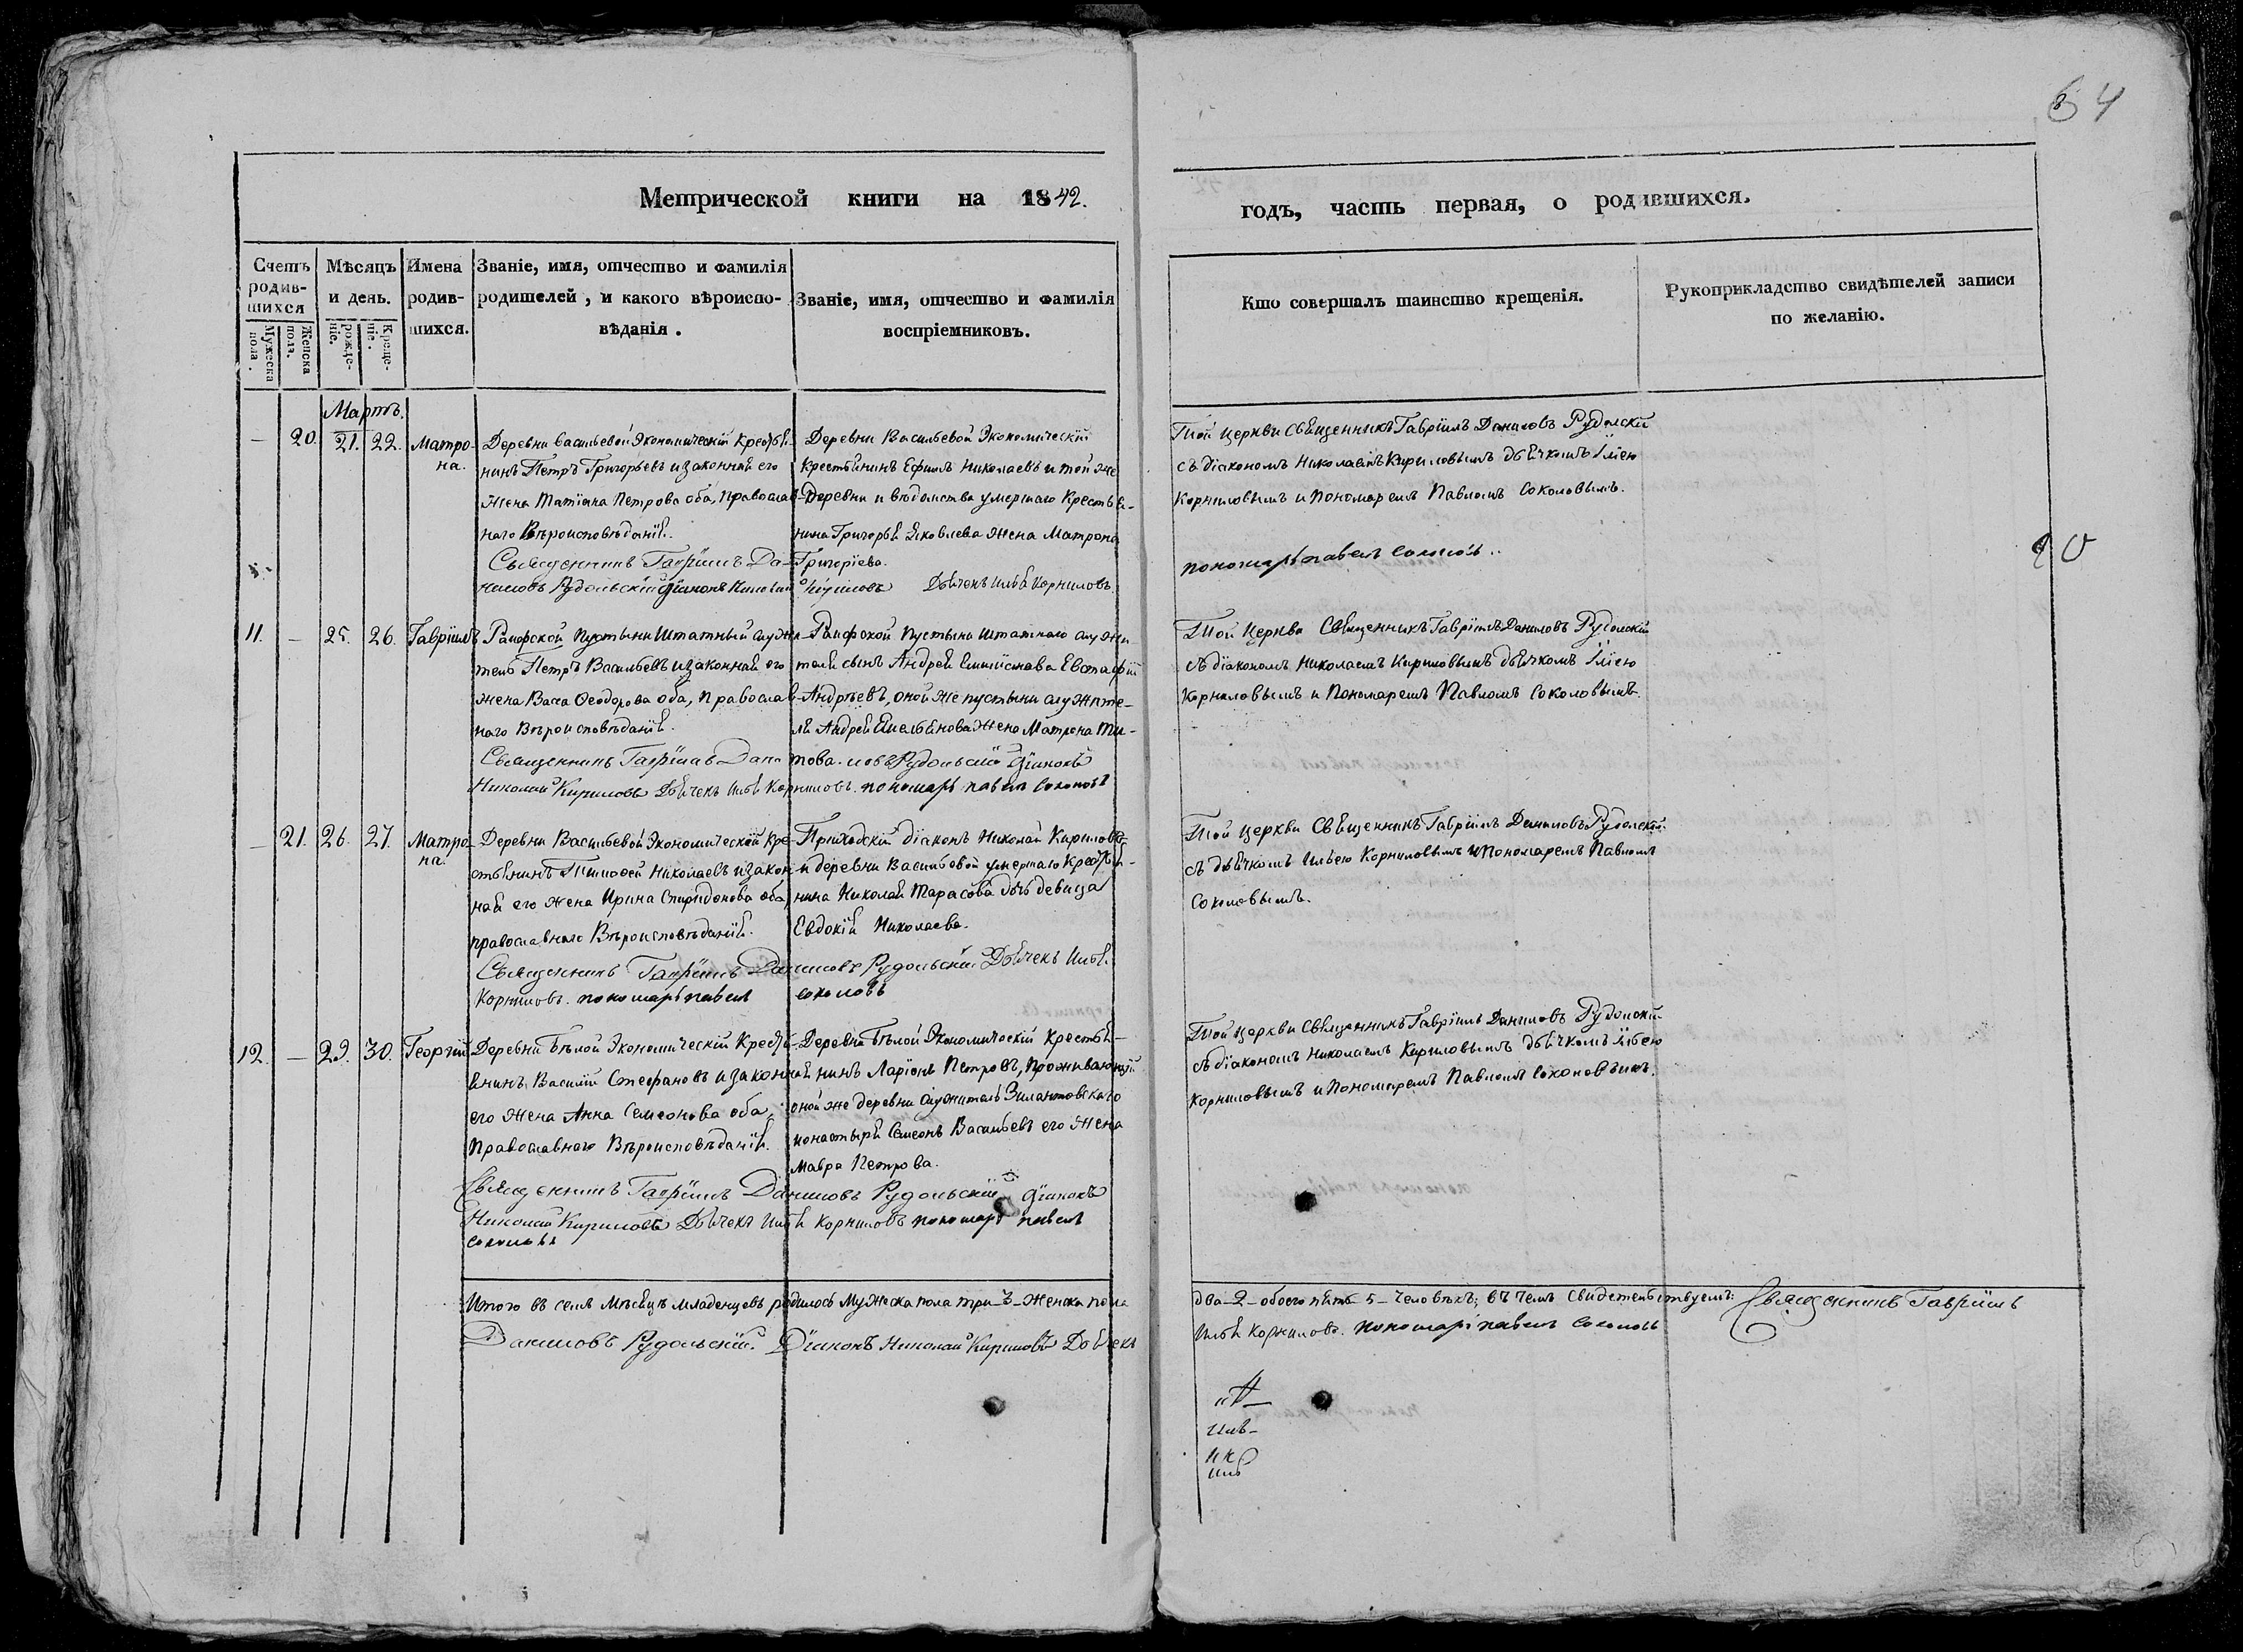 64
Метрической книги на 1842.
годъ, часть первая, о родившихся.
Счетъ родив-шихся
Мужеска пола.
Женска пола.
Мѣсяцъ и день.
рожде-ніе.
Креще-ніе.
Имена родив-шихся.
Званіе, имя, отчество и фамилія родителей, и какого вѣроиспо-вѣданія.
Званіе, имя, отчество и фамилія воспріемниковъ.
Кто совершалъ таинство крещенія.
Рукоприкладство свидѣтелей записи по желанію.
Мартъ.
— 20. 21. 22. Матро-
на.
Деревни Васильевой Экономическій Крестья-
нинъ Петръ Григорьевъ и законная его
жена Татіана Петрова оба, православ-
наго Вѣроисповѣданія.
Деревни Васильевой Экономическій
крестьянинъ Ефимъ Николаевъ и той же
Деревни и вѣдомства умершаго Крестья-
нина Григорья Яковлева жена Матрона
Григоріева.
Священникъ Гавріилъ Да-
ниловъ Рудольскій Діаконъ Николай Кириловъ Дьячекъ Илья Корниловъ.
Той церкви Священникъ Гавріилъ Даниловъ Рудолскій
съ діакономъ Николаемъ Кириловымъ дьячкомъ Іліею
Корниловымъ и Пономаремъ Павломъ Соколовымъ.
пономарь павелъ соколовъ.
11. — 25. 26. Гавріилъ
Раифской Пустыни Штатный служи-
тель Петръ Васильевъ и законная его
жена Васа Ѳеодорова оба, православ-
наго Вѣроисповѣданія.
Раифской Пустыни штатнаго служи-
теля сынъ Андрея Евстафій
Андрѣевъ, оной же пустыни служите-
ля Андрея Емельянова жена Матрена Ти-
това.
Священникъ Гавріилъ Даниловъ Рудольскій Діаконъ
Николай Кириловъ Дьячекъ Илья Корниловъ. пономарь павелъ соколовъ
Той Церкви Священникъ Гавріилъ Даниловъ Рудолскій
съ діакономъ Николаемъ Кириловымъ дьячкомъ Іліею
Корниловымъ и Пономаремъ Павломъ Соколовымъ.
— 21. 26. 27. Матро-
на.
Деревни Васильевой Экономической Кре-
стьянинъ Тимоѳей Николаевъ и закон-
ная его жена Ирина Спиридонова оба,
православнаго Вѣроисповѣданія.
Приходскій діаконъ Николай Кириловъ
и деревни Васильевой умершаго Крестья-
нина Николая Тарасова дочь девица
Евдокія Николаева.
Священникъ Гавріилъ Даниловъ Рудольскій Дьячекъ Илья
Корниловъ. пономарь павелъ соколовъ
Той церкви Священникъ Гавріилъ Даниловъ Рудолскій
съ дьячкомъ Ильею Корниловымъ и Пономаремъ Павломъ
Соколовымъ.
12. — 29. 30. Георгій
Деревни Бѣлой Экономическій Кресть-
янинъ Василій Стефановъ и законная
его жена Анна Семеонова оба,
Православнаго Вѣроисповѣданія.
Деревни Бѣлой Экономическій Крестья-
нинъ Ларіонъ Петровъ, Проживающій
оной же деревни служитель Зилантовскаго
монастыря Семеонъ Васильевъ его жена
Мавра Петрова.
Священникъ Гавріилъ Даниловъ Рудольскій Діаконъ
Николай Кириловъ Дьячекъ Илья Корниловъ пономарь павелъ
соколовъ
Той церкви Священникъ Гавріилъ Даниловъ Рудолскій
съ діакономъ Николаемъ Кириловымъ дьячкомъ Ильею
Корниловымъ и Пономаремъ Павломъ Соколовымъ.
Итого въ семъ Мѣсяцѣ младенцевъ родилось Мужеска пола три-3-Женска пола
два-2-обоего пять-5-человѣкъ; въ чемъ свидетельствуемъ: Священникъ Гавріилъ
Даниловъ Рудольскій. Діаконъ Николай Кириловъ Дьячекъ
Илья Корниловъ. пономарь павелъ соколовъ